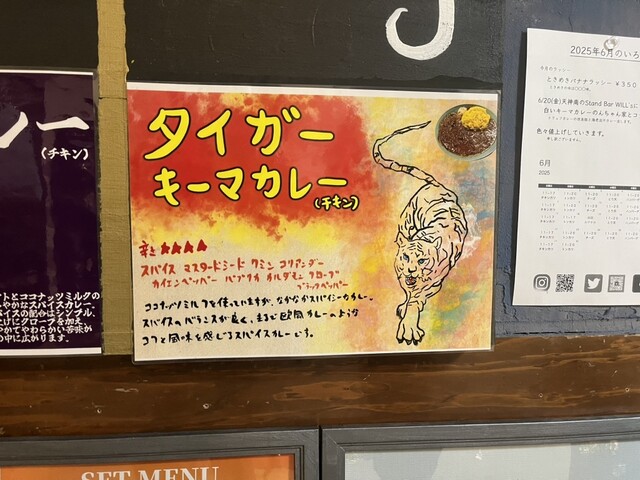 タイガー
キーマカレー
(チキン)
辛さ★★★★
スパイス マスタードシード クミン コリアンダー
カイエンペッパー パプリカ カルダモン クローブ
ブラックペッパー
ココナッツミルクを使っていますが、なかなかスパイシーなカレー。
スパイスのバランスが良く、まるで欧風カレーのような
コクと風味を感じるスパイスカレーです。
(チキン)
トとココナッツミルクの
やかなスパイスカレー
パイスの配合はシンプル、
上げにクローブを加え、
やかでやわらかい苦味が
の中に広がります。
2025年6月のいろ
ときめきバナナラッシー ¥350
6/20(金)天神南のStand Bar WILL
白いキーマカレーのんちゃん家とコ
色々値上げしていきます。
6月
2025
SET MENU